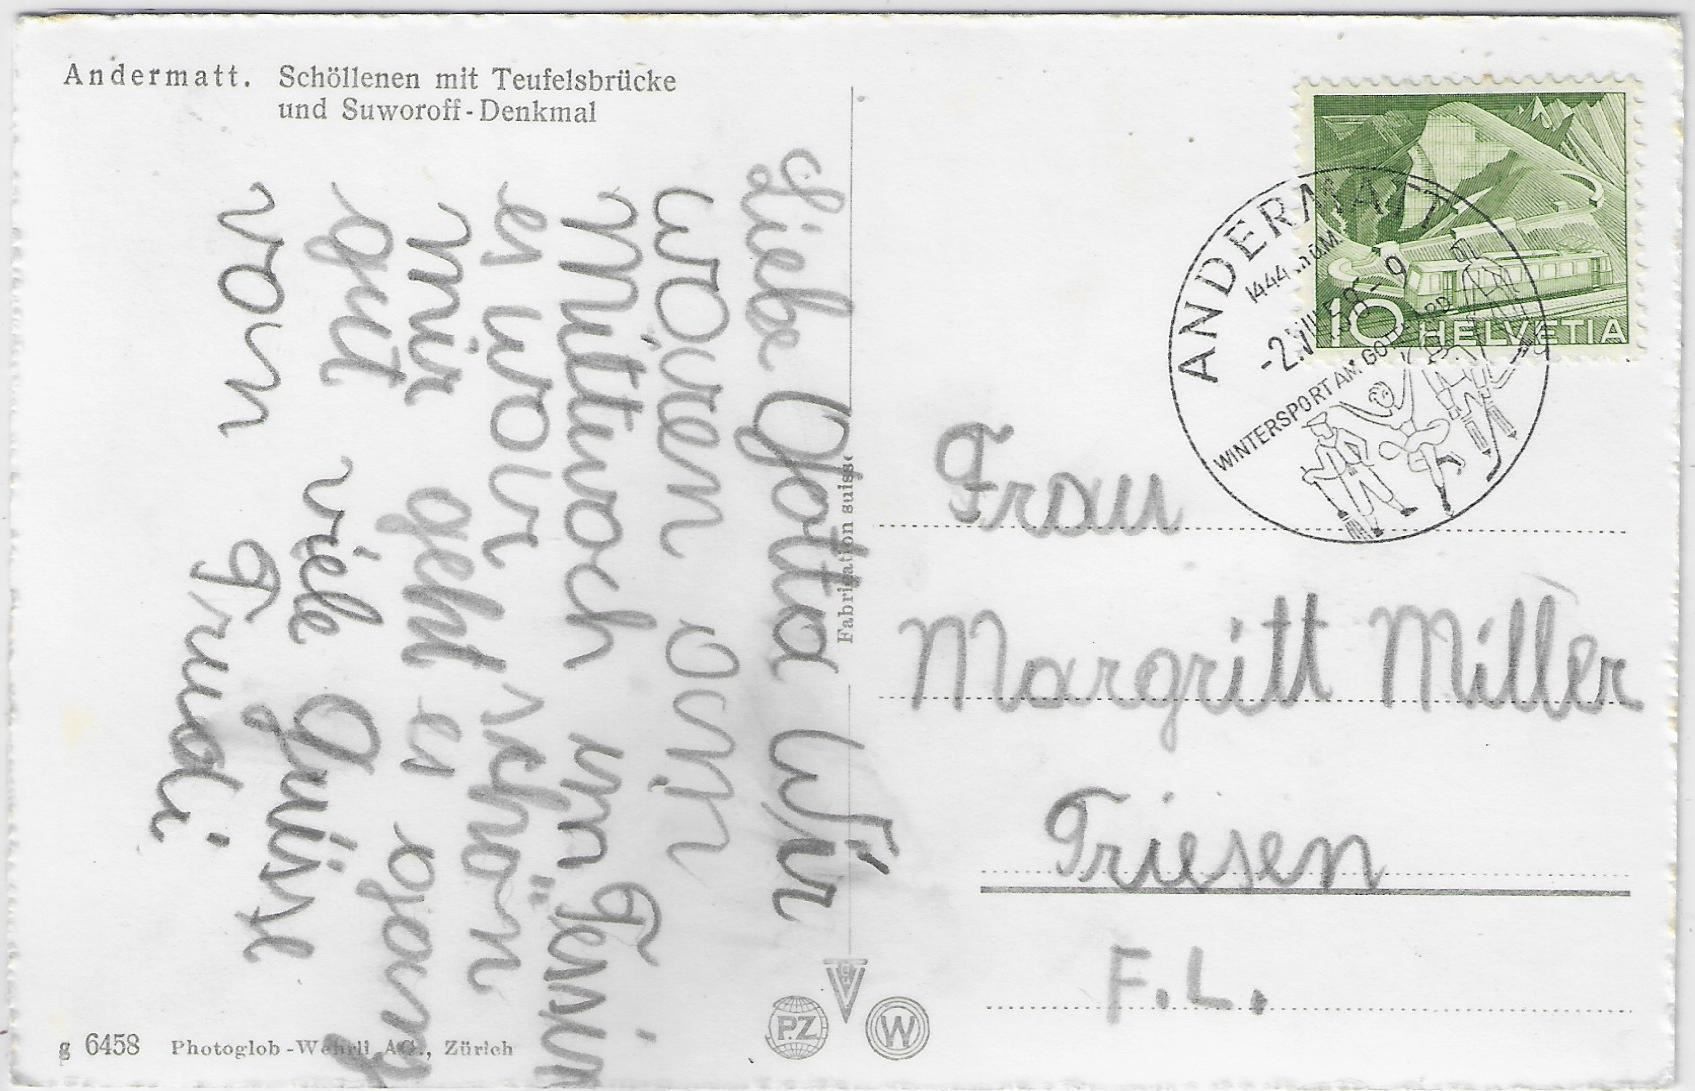 Andermatt. Schöllenen mit Teufelsbrücke
und Suworoff-Denkmal
Liebe Gotta Wir
woren om
Mittwoch im Tessin
es wor schön
mir geht es gonz
gut viele Grüsse
von Trudi
Fabrication suisse
ANDERMATT
1444 m ü.M.
-2.VIII.58-9
WINTERSPORT AM GOTTHARD
10 HELVETIA
Frau
Margritt Miller
Triesen
F.L.
g 6458 Photoglob-Wehrli AG., Zürich
PZ
VG
W